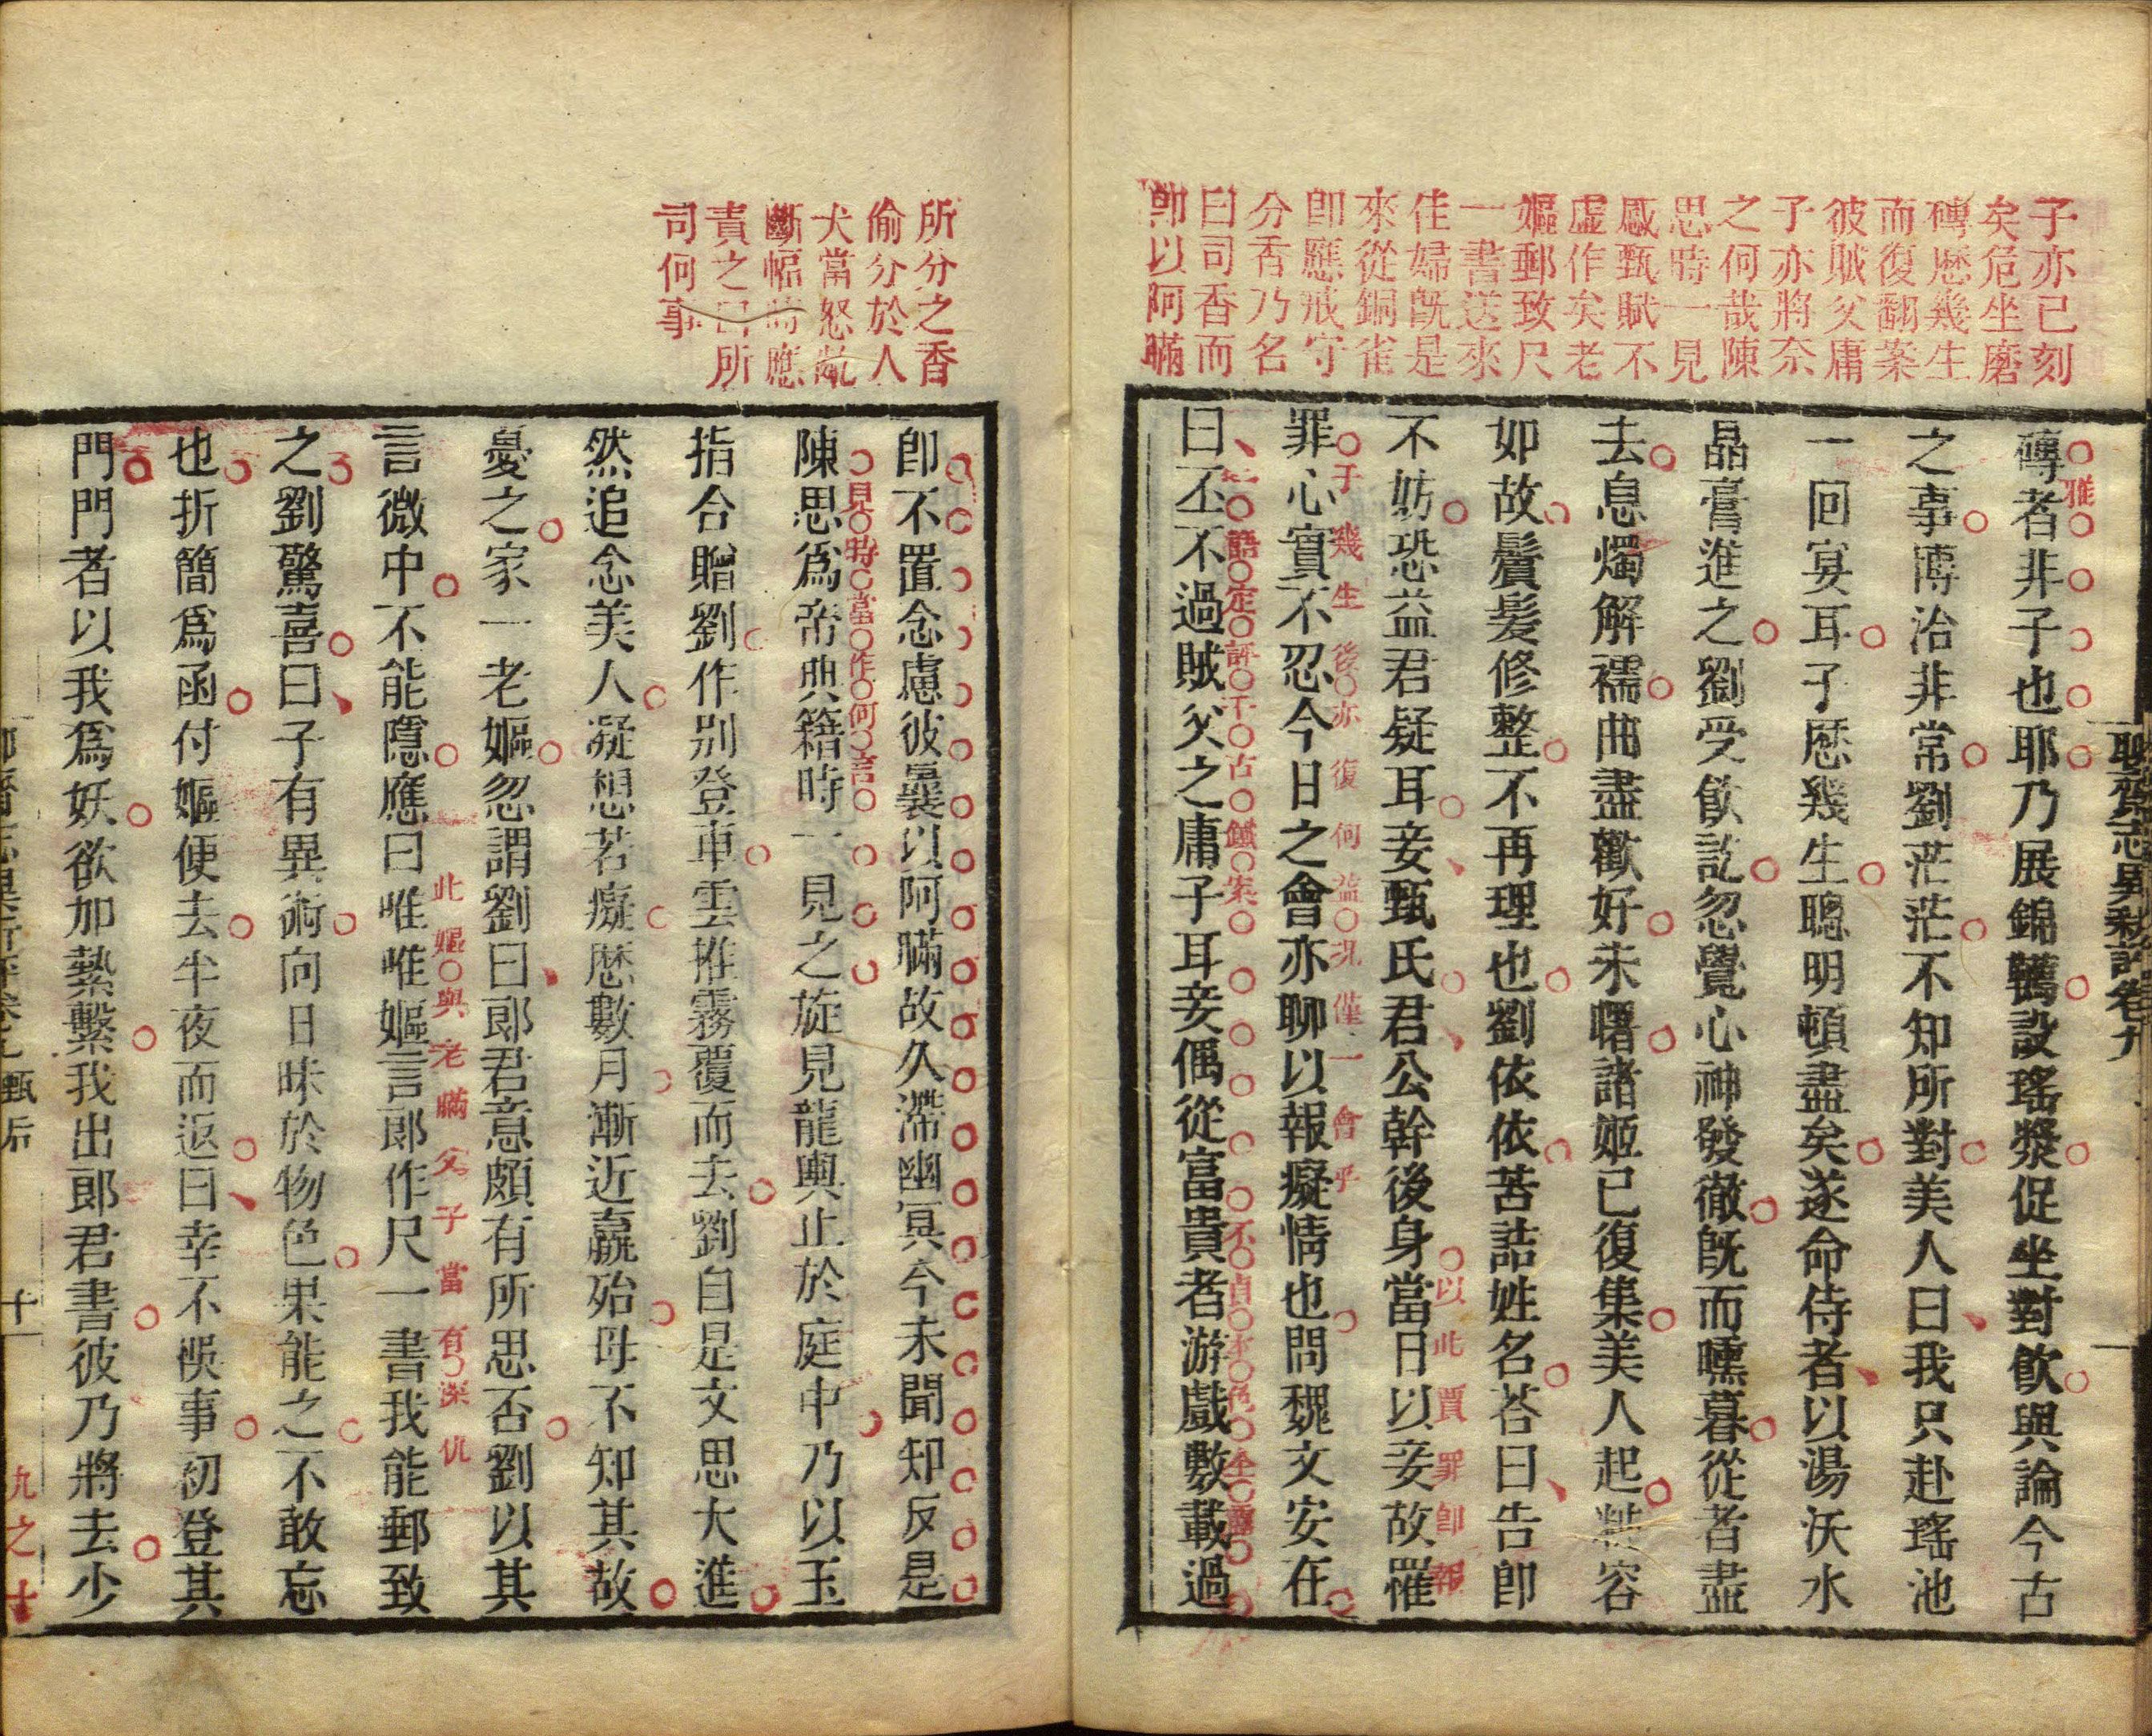 子亦已刻
矣危坐磨
磚歷幾生
而復翻案
彼賊父庸
子亦將奈
之何哉陳
思時一見
感甄賦不
虛作矣老
嫗郵致尺
一書送來
佳婦旣是
來從銅雀
卽應戒守
分香乃名
曰司香而
卽以阿瞞
聊齋志異新評卷九
磚者非子也耶乃展錦韉設瑤漿促坐對飲與論今古
雅
之事博洽非常劉茫茫不知所對美人曰我只赴瑤池
一回宴耳子歷幾生聰明頓盡矣遂命侍者以湯沃水
晶膏進之劉受飲訖忽覺心神發徹旣而曛暮從者盡
去息燭解襦曲盡歡好未曙諸姬已復集美人起粧容
如故鬢髮修整不再理也劉依依苦詰姓名荅曰告卽
不妨恐益君疑耳妾甄氏君公幹後身當日以妾故罹
以此賈罪卽報
罪心實不忍今日之會亦聊以報癡情也問魏文安在
子幾生後亦復何益況僅一會乎
曰丕不過賊父之庸子耳妾偶從富貴者游戲數載過
語定評千古鐵案
不貞才色全露
所分之香
偷分於人
犬當怒齕
斷幅時應
責之曰所
司何事
卽不置念慮彼曩以阿瞞故久滯幽冥今未聞知反是
陳思爲帝典籍時一見之旋見龍輿止於庭中乃以玉
見時當作何言
指合贈劉作別登車雲推霧覆而去劉自是文思大進
然追念美人凝想若癡歷數月漸近羸殆母不知其故
憂之家一老嫗忽謂劉曰郎君意頗有所思否劉以其
言微中不能隱應曰唯唯嫗言郎作尺一書我能郵致
此嫗與老瞞父子當有深仇
之劉驚喜曰子有異術向日昧於物色果能之不敢忘
也折簡爲函付嫗便去半夜而返曰幸不悞事初登其
門門者以我爲妖欲加縶繫我出郎君書彼乃將去少
聊齋志異新評卷九 甄后
十一
九之十